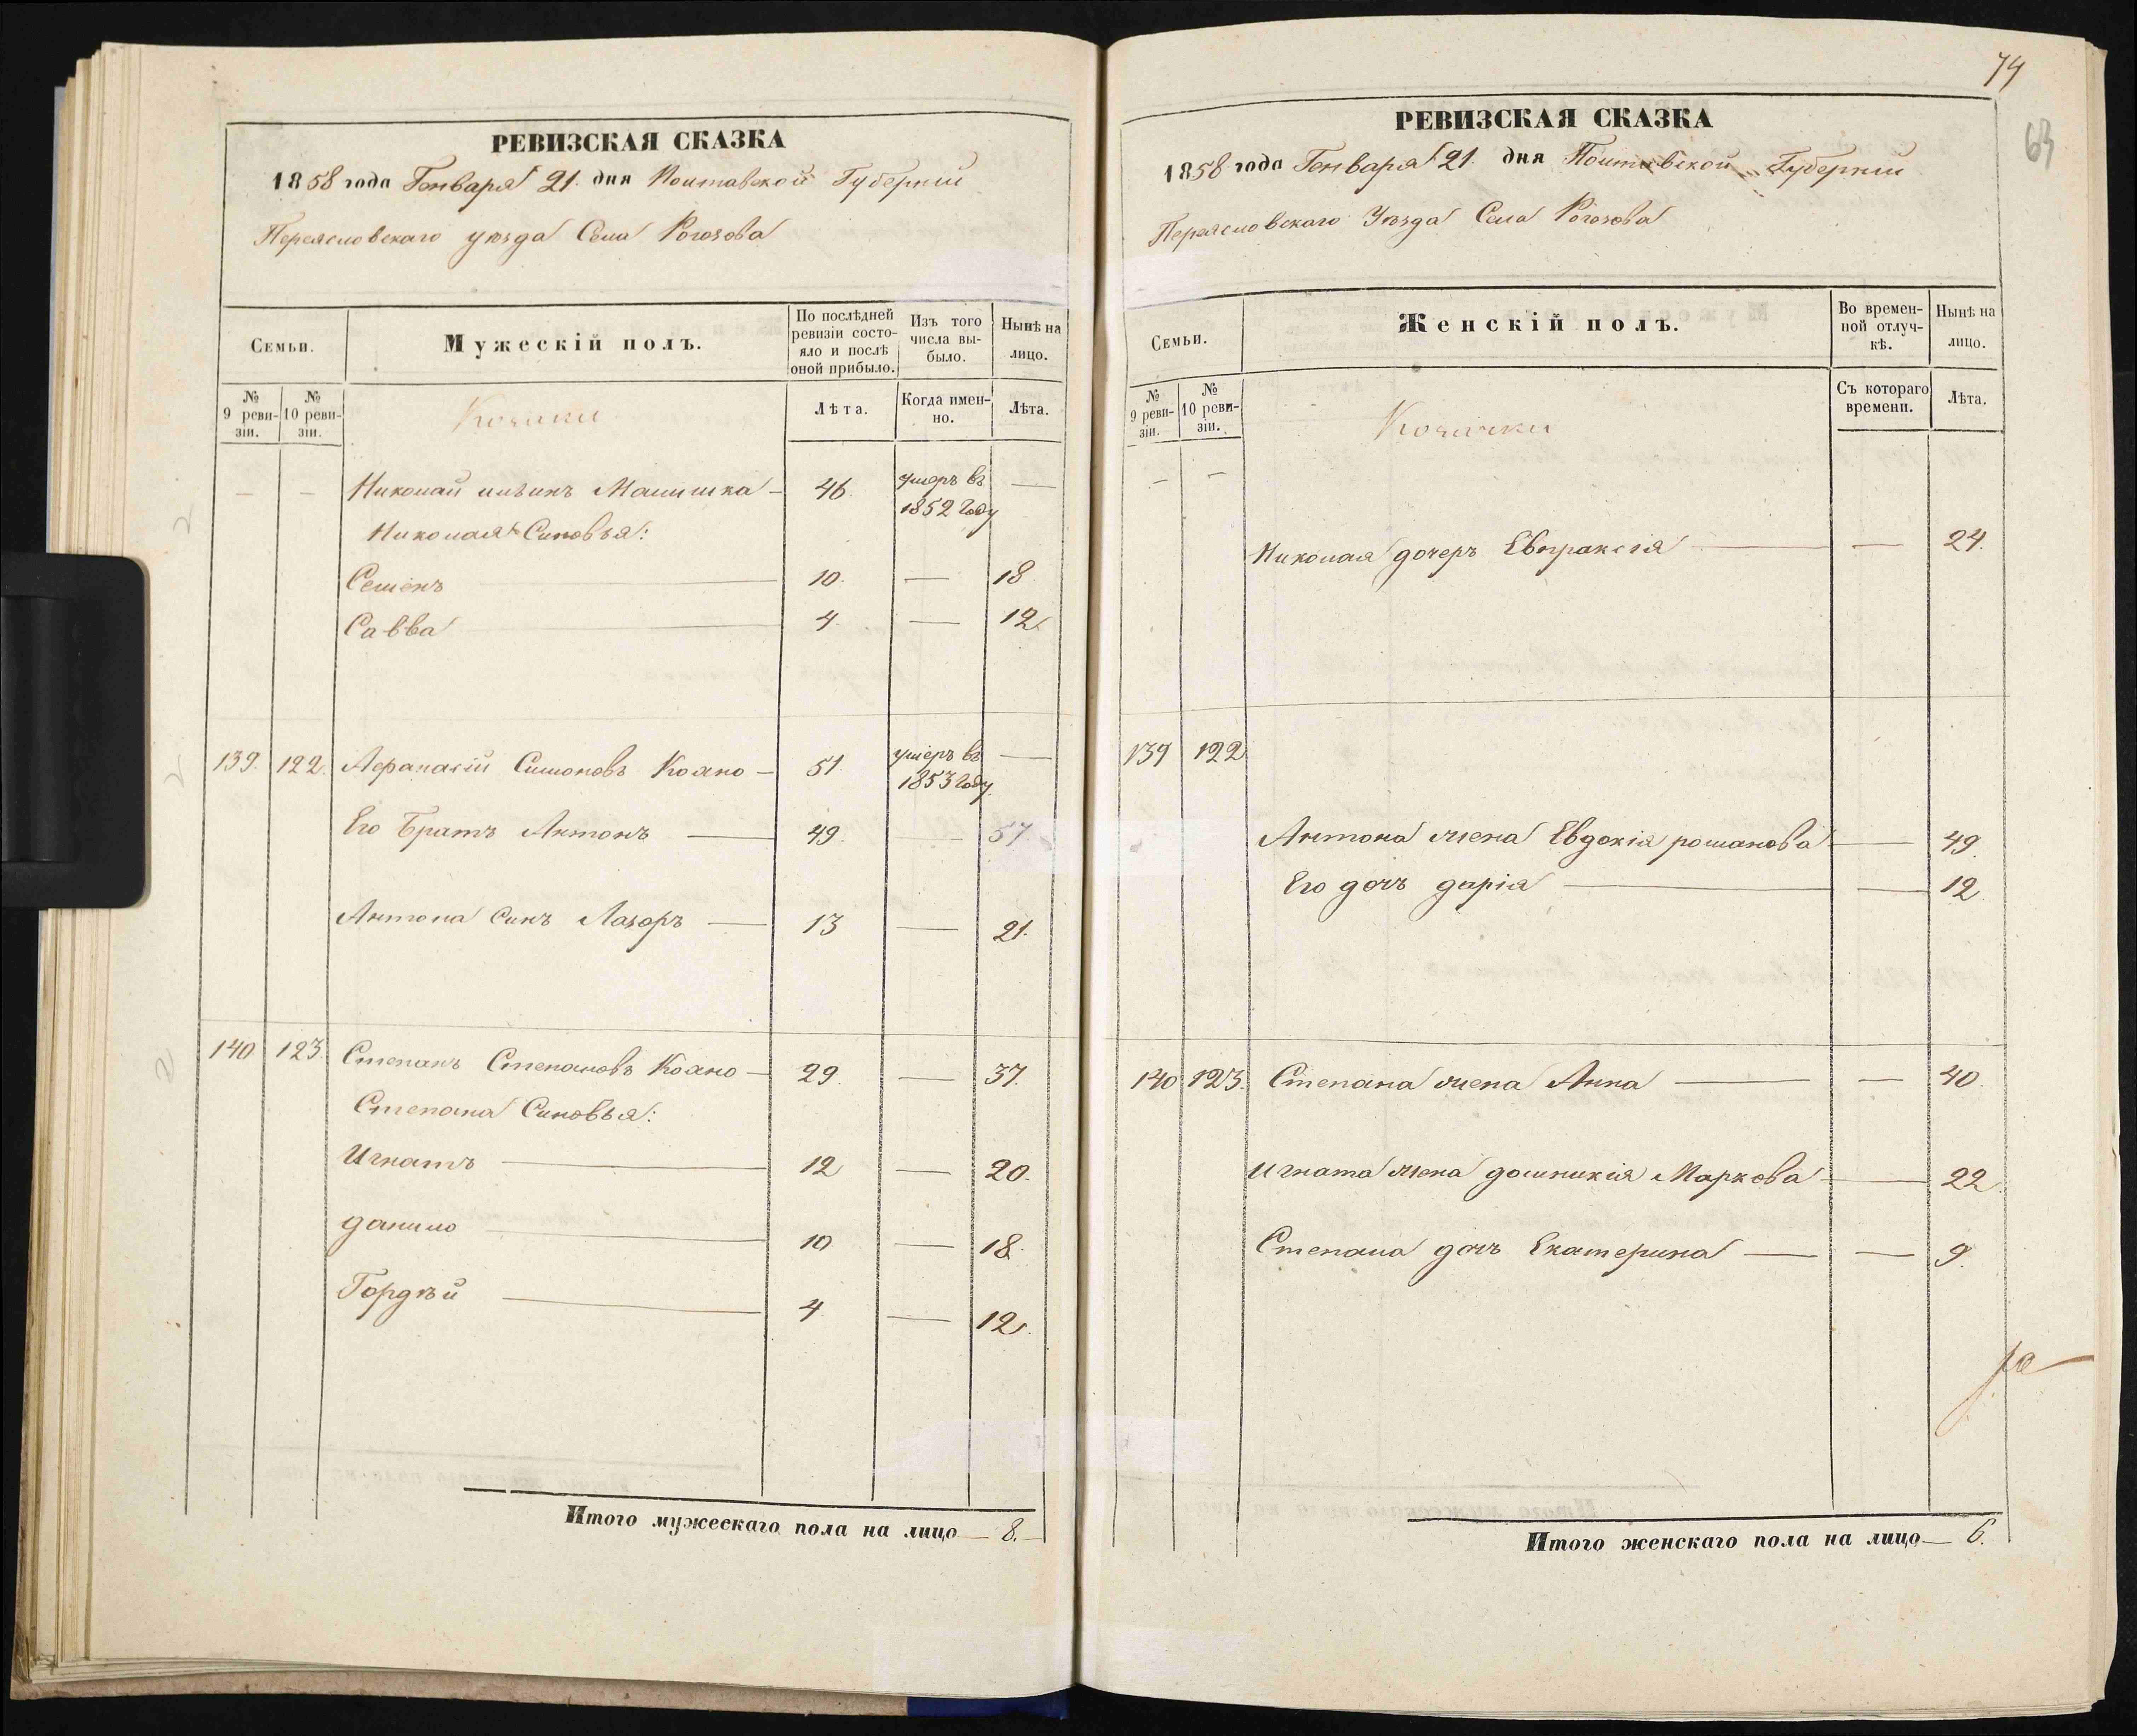 74
63
РЕВИЗСКАЯ СКАЗКА
1858 года Генваря 21. дня Полтавской Губернии
Переясловскаго уезда Села Рогозова
Семьи.
Мужескій полъ.
По послѣдней ревизіи состояло и послѣ оной прибыло.
Изъ того числа выбыло.
Нынѣ на лицо.
№ 9 ревизіи.
№ 10 ревизіи.
Козаки
Лѣта.
Когда именно.
Лѣта.
— — Николай Малишка — 46. умеръ въ 1852 году —
Николая Синовья:
Семенъ — 10. — 18
Савва — 4 — 12
139. 122. Афанасій Симоновъ Кояло — 51. умеръ въ 1853 году —
Его Братъ Антонъ — 49. — 57.
Антона Синъ Лазоръ — 13 — 21.
140 123. Степанъ Степановъ Кояло — 29. — 37.
Степана Синовья:
Игнатъ — 12 — 20.
данило — 10 — 18.
Гордѣй — 4 — 12.
Итого мужескаго пола на лицо — 8. —
РЕВИЗСКАЯ СКАЗКА
1858 года Генваря 21. дня Полтавской Губернии
Переясловскаго Уѣзда Села Рогозова
Семьи.
Женскій полъ.
Во временной отлучкѣ.
Нынѣ на лицо.
№ 9 ревизіи.
№ 10 ревизіи.
Козачки
Съ котораго времени.
Лѣта.
— —
Николая дочеръ Евпраксія — — 24.
139 122
Антона жена Евдокія романова — 49.
Его дочъ дарія — — 12
140 123. Степана жена Анна — — 40.
Игната жена домникія Маркова — 22
Степана дочъ Екатерина — — 9.
Итого женскаго пола на лицо — 6.